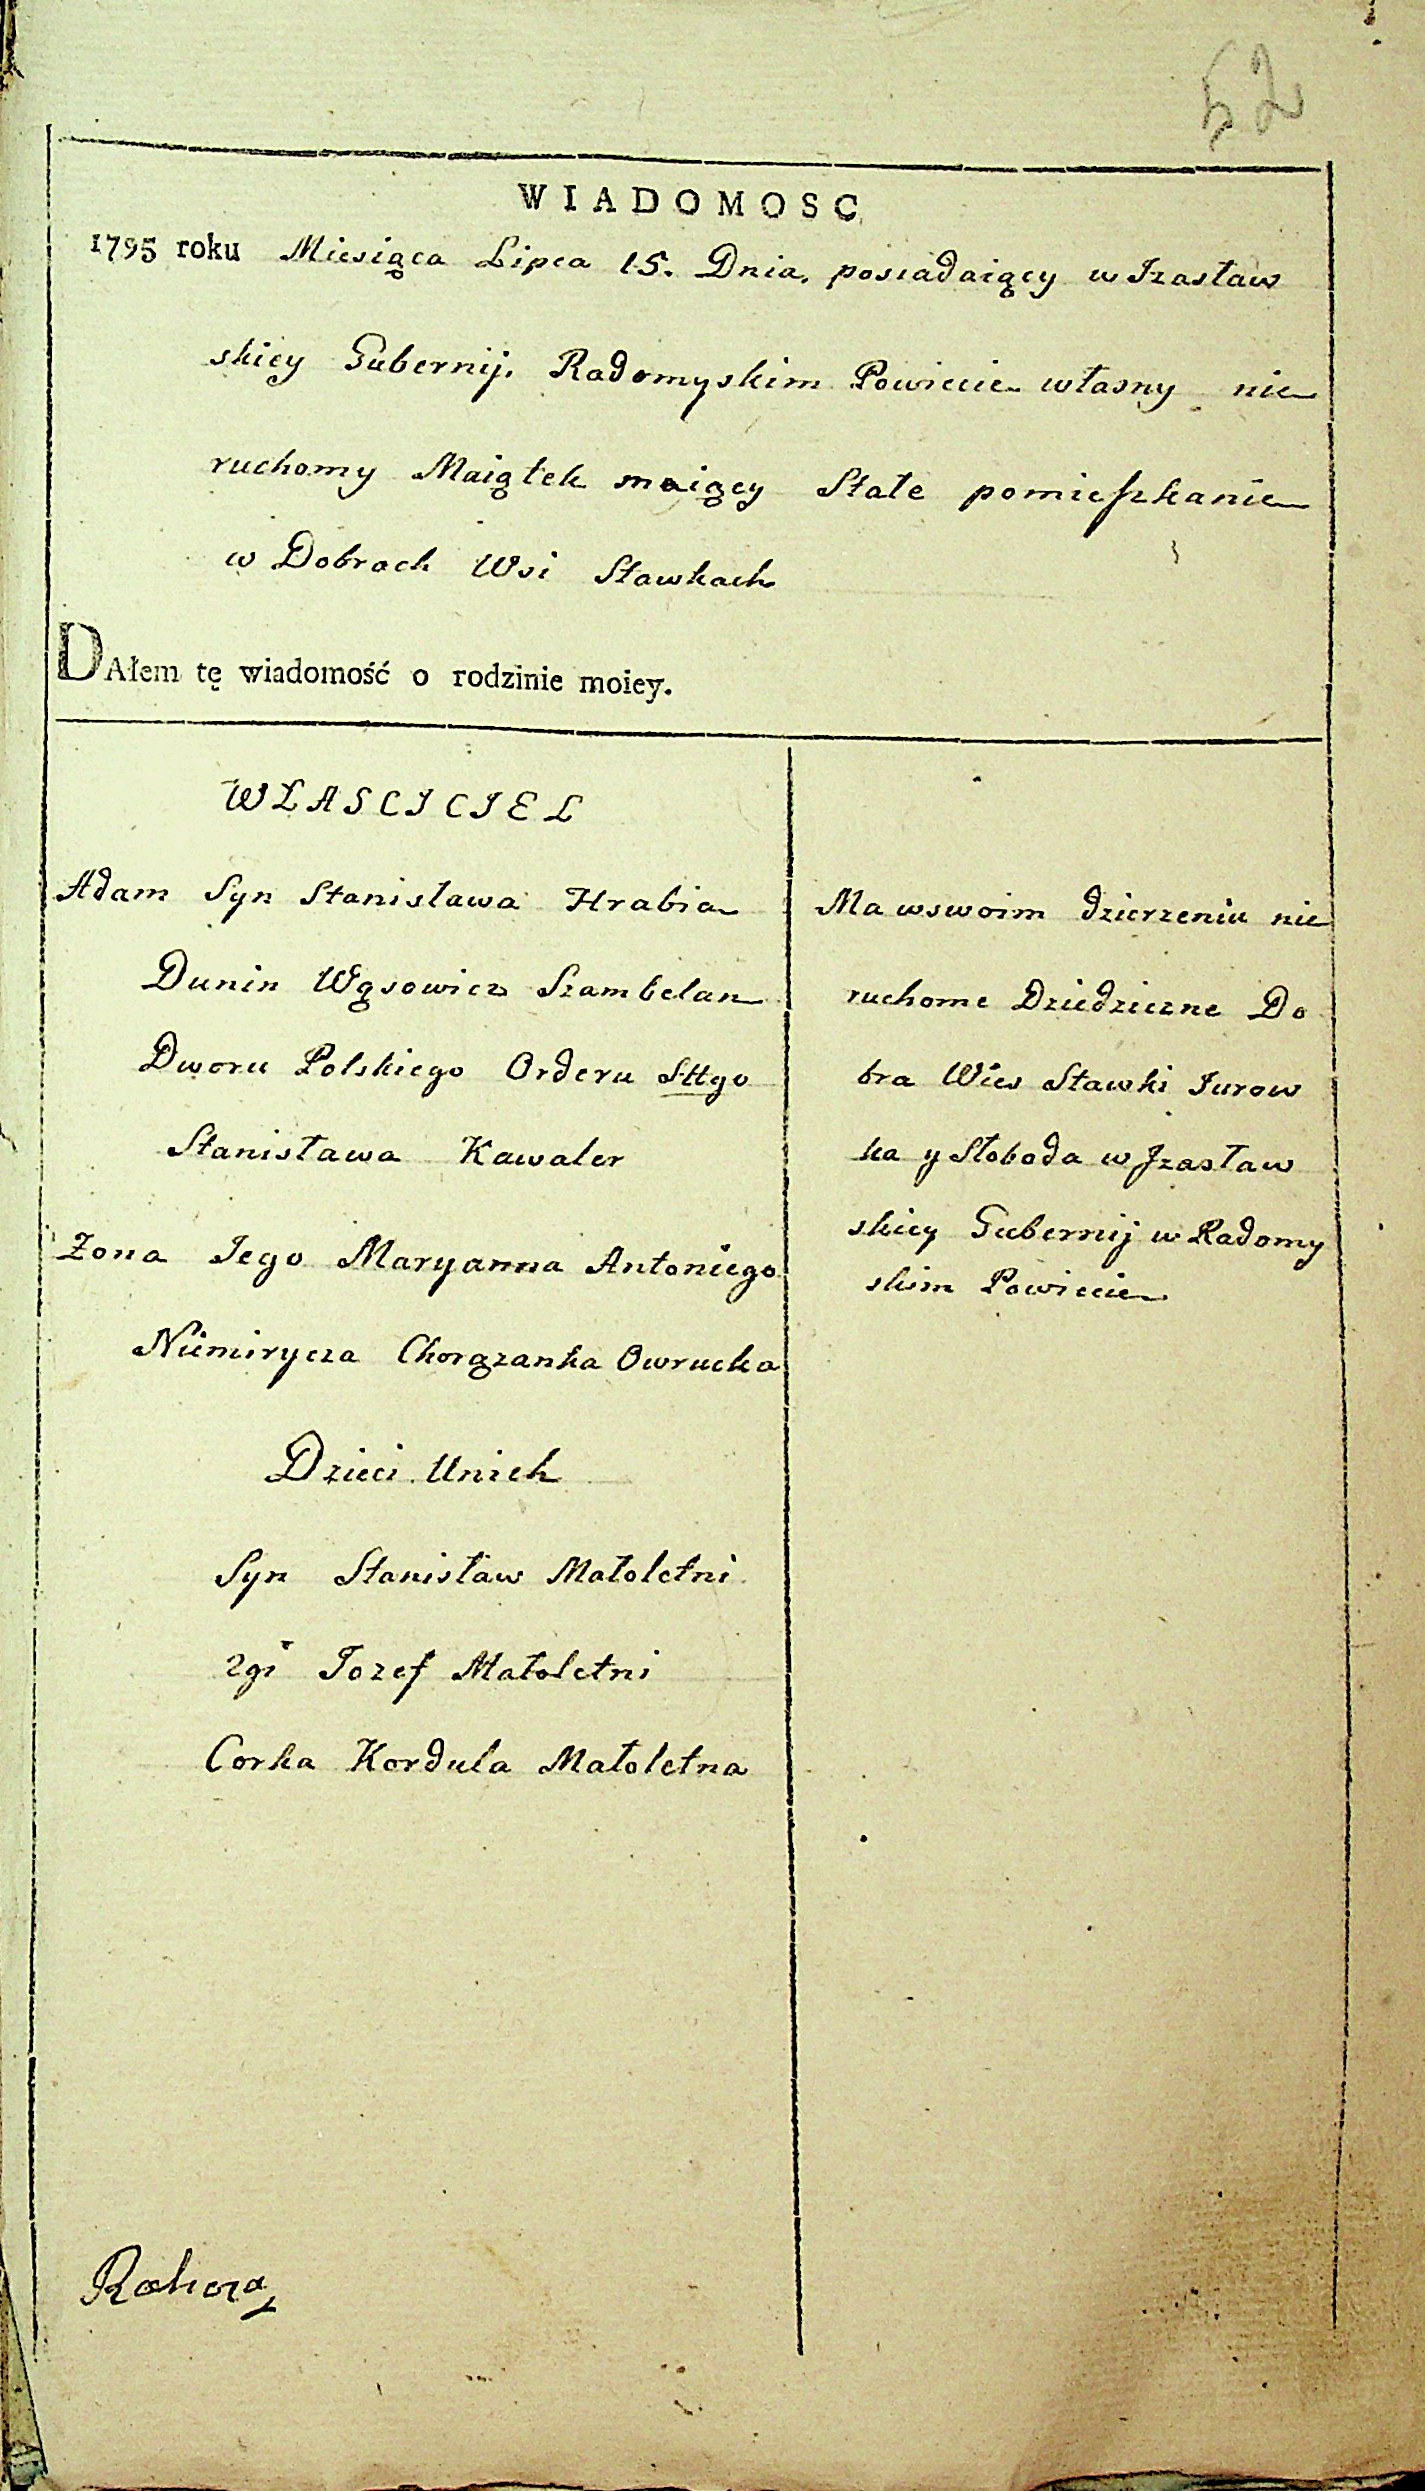 52
WIADOMOSC
1795 roku Miesiąca Lipca 15. Dnia, posiadaiący w Izasław
skiey Gubernij. Radomyskim Powiecie własny nie
ruchomy Maiątek maiący Stałe pomieszkanie
w Dobrach Wsi Stawkach
DAłem tę wiadomość o rodzinie moiey.
WŁASCICIEL
Adam Syn Stanisława Hrabia
Dunin Wąsowicz Szambelan
Dworu Polskiego Orderu Sttgo
Stanisława Kawaler
Zona Iego Maryanna Antoniego
Niemirycza Chorązanka Owrucka
Dzieci Unich
Syn Stanisław Małoletni
2gi Iozef Małoletni
Corka Kordula Małoletna
Ma wswoim dzierzeniu nie
ruchome Dziedziczne Do
bra Wies Stawki Iurow
ka y Słoboda w Izasław
skiey Gubernij w Radomy
skim Powiecie